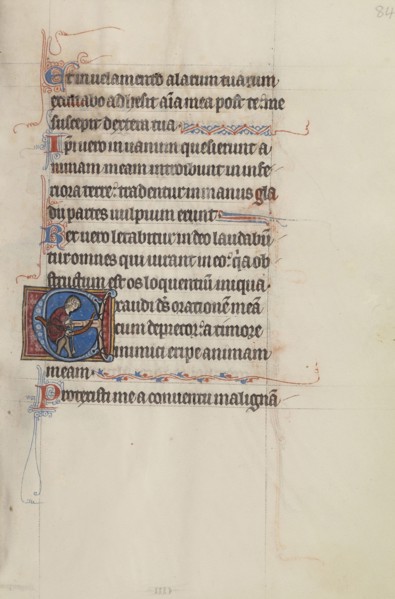 84
Et in velamento alarum tuarum
exultabo adhesit aīa mea post te: me
suscepit dextera tua
Ipsi vero in vanum quesierunt a
nimam meam introibunt in infe
riora terre: tradentur in manus gla
dii partes vulpium erunt
Rex vero letabitur in deo laudabūt
tur omnes qui iurant in eo: q̄a ob
structum est os loquentiū iniqua
Exaudi ds̄ orationē meā
cum deprecor: a timore
inimici eripe animam
meam
Protexisti me a conventu malignā